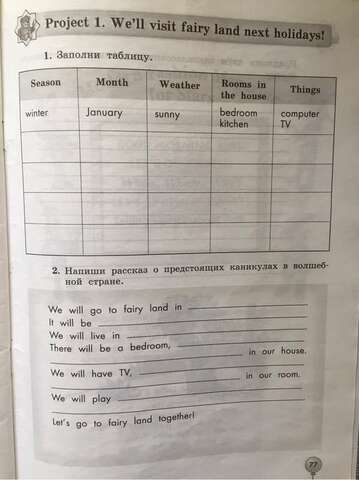 Project 1. We'll visit fairy land next holidays!
1. Заполни таблицу.
Season Month Weather Rooms in the house Things
winter January sunny bedroom kitchen computer TV
2. Напиши рассказ о предстоящих каникулах в волшеб-
ной стране.
We will go to fairy land in
It will be
We will live in
There will be a bedroom,
in our house.
We will have TV,
in our room.
We will play
Let's go to fairy land together!
77